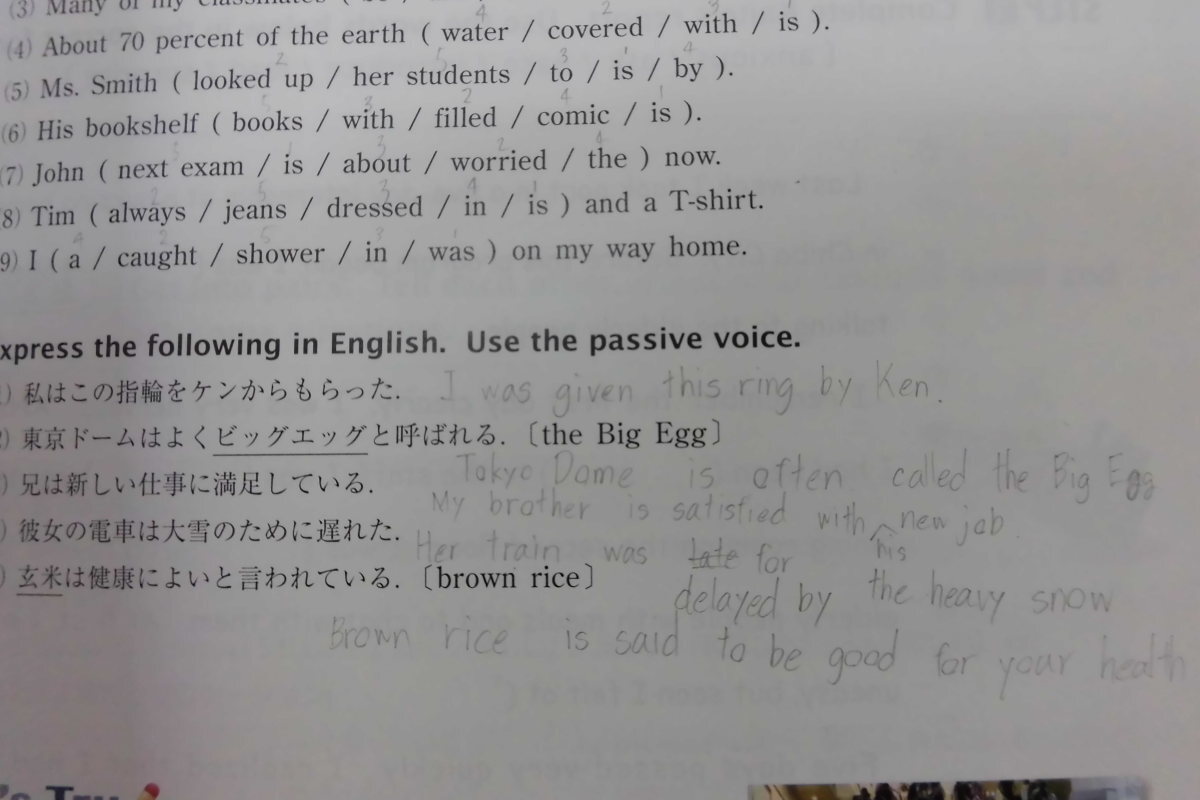 (3) Many of my classmates (
(4) About 70 percent of the earth ( water / covered / with / is ).
4 2 3 1
(5) Ms. Smith ( looked up / her students / to / is / by ).
2 5 3 1 4
(6) His bookshelf ( books / with / filled / comic / is ).
5 3 2 4 1
(7) John ( next exam / is / about / worried / the ) now.
5 1 3 2 4
(8) Tim ( always / jeans / dressed / in / is ) and a T-shirt.
2 5 3 4 1
9) I ( a / caught / shower / in / was ) on my way home.
4 2 5 3 1
xpress the following in English. Use the passive voice.
) 私はこの指輪をケンからもらった. I was given this ring by Ken.
) 東京ドームはよくビッグエッグと呼ばれる.〔the Big Egg〕
Tokyo Dome is often called the Big Egg
) 兄は新しい仕事に満足している.
My brother is satisfied with his new job.
) 彼女の電車は大雪のために遅れた.
Her train was late for
delayed by the heavy snow
) 玄米は健康によいと言われている.〔brown rice〕
Brown rice is said to be good for your health
's Try